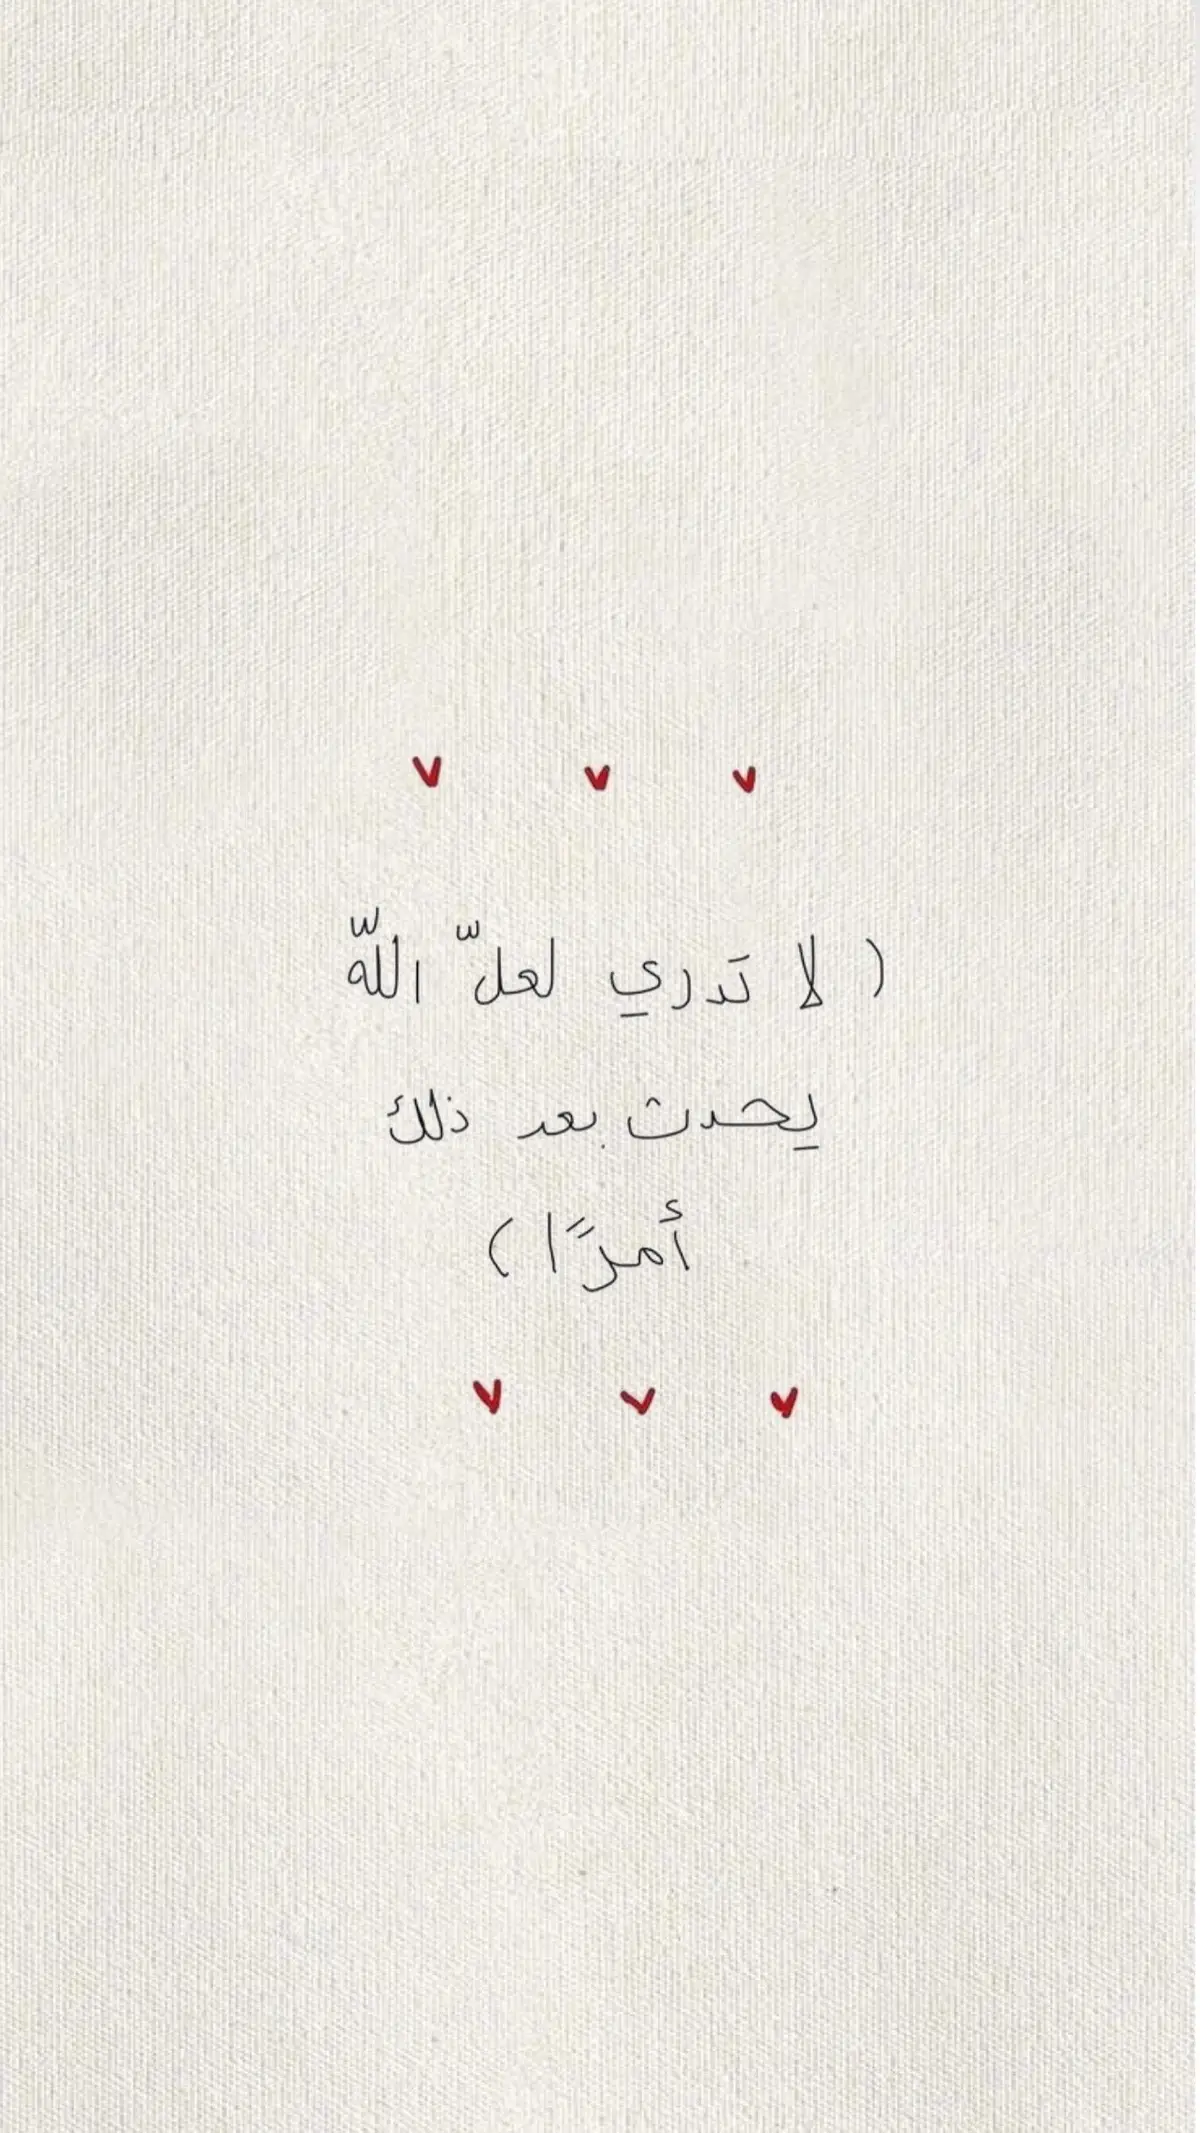 ( لا تدري لعلّ اللّه
يحدث بعد ذلك
أمرًا )